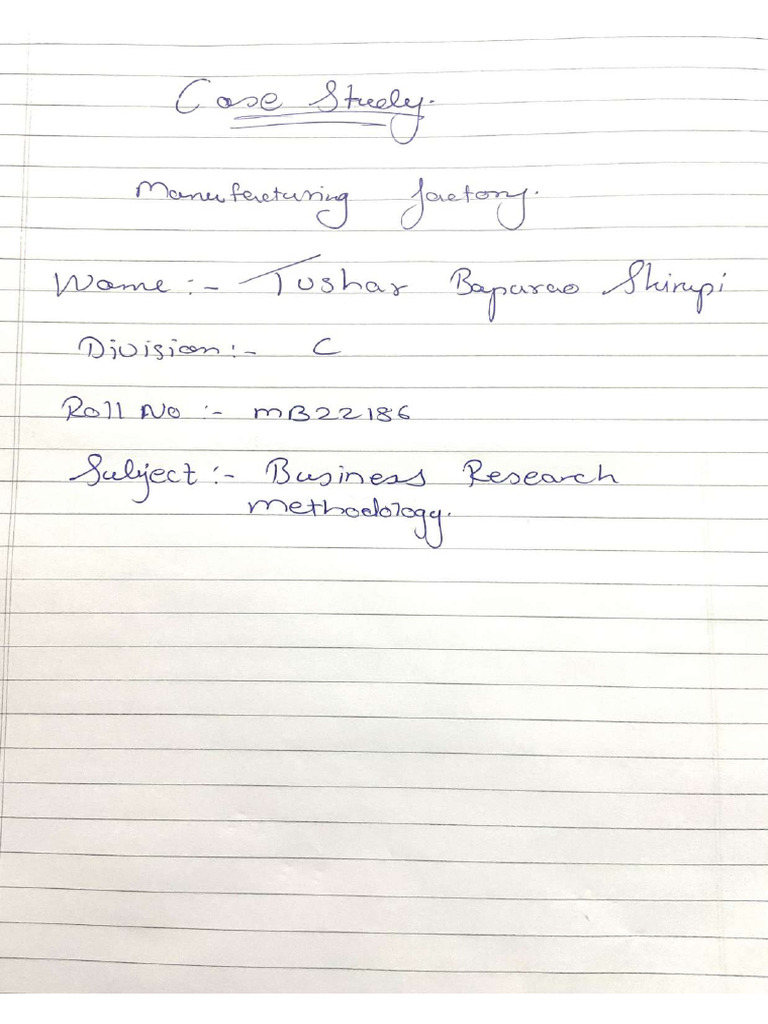 Case Study.
Manufacturing factory.
Name :- Tushar Baparao Shirupi
Division :- C
Roll No :- MB22186
Subject :- Business Research
methodology.